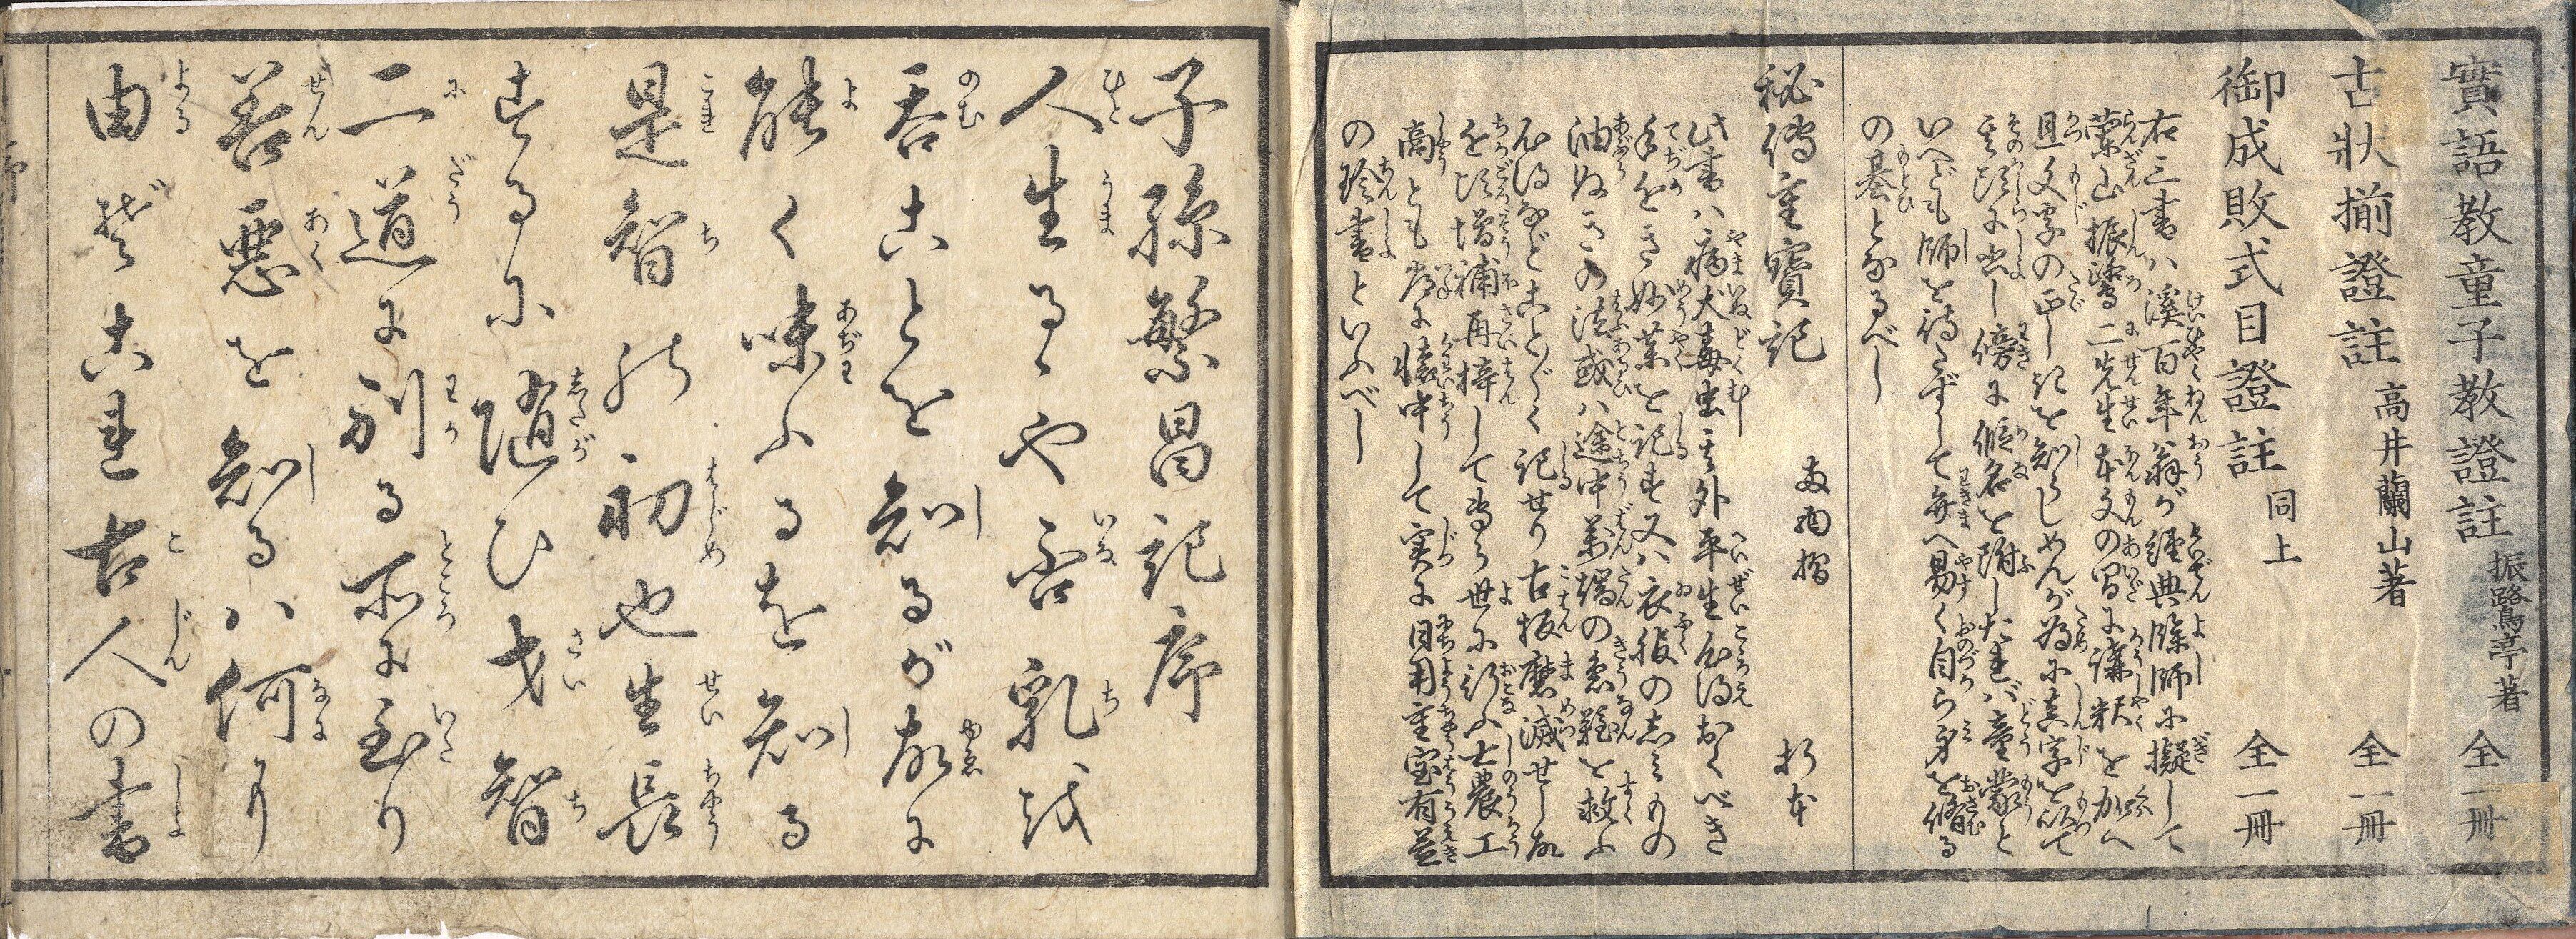 實語教童子教證註 振鷺亭著 全一冊
古狀揃證註 高井蘭山著 全一冊
御成敗式目證註 同上 全一冊
右三書ハ溪百年翁が経典餘師に擬して
蘭山振鷺二先生本文の間に講釈を加へ
且文字の正し記を知らしめんが為に真字を以て
其頭に出し傍に假名を附したれバ童蒙と
いへども師を待たずして弁へ易く自ら身を脩る
の基となるべし
秘傳重寳記 両面摺 折本
此書ハ病犬毒虫其外平生心得おくべき
手ぢかき妙薬を記す又ハ衣服のしミもの
油ぬきの法或ハ途中萬端の急難を救ふ
心得などことごとく記せり古板磨滅せし故
を頭増補再梓して専ら世に行ふ士農工
商とも常に懐中して実に日用重宝有益
の珍書といふべし
子孫繁昌記序
人生るゝや否乳を
呑ことを知るが故に
能く味ふるを知る
是智の初也生長
するに随ひ才智
二道に別る所に至り
善悪を知るハ何に
由ぞこれ古人の書
序